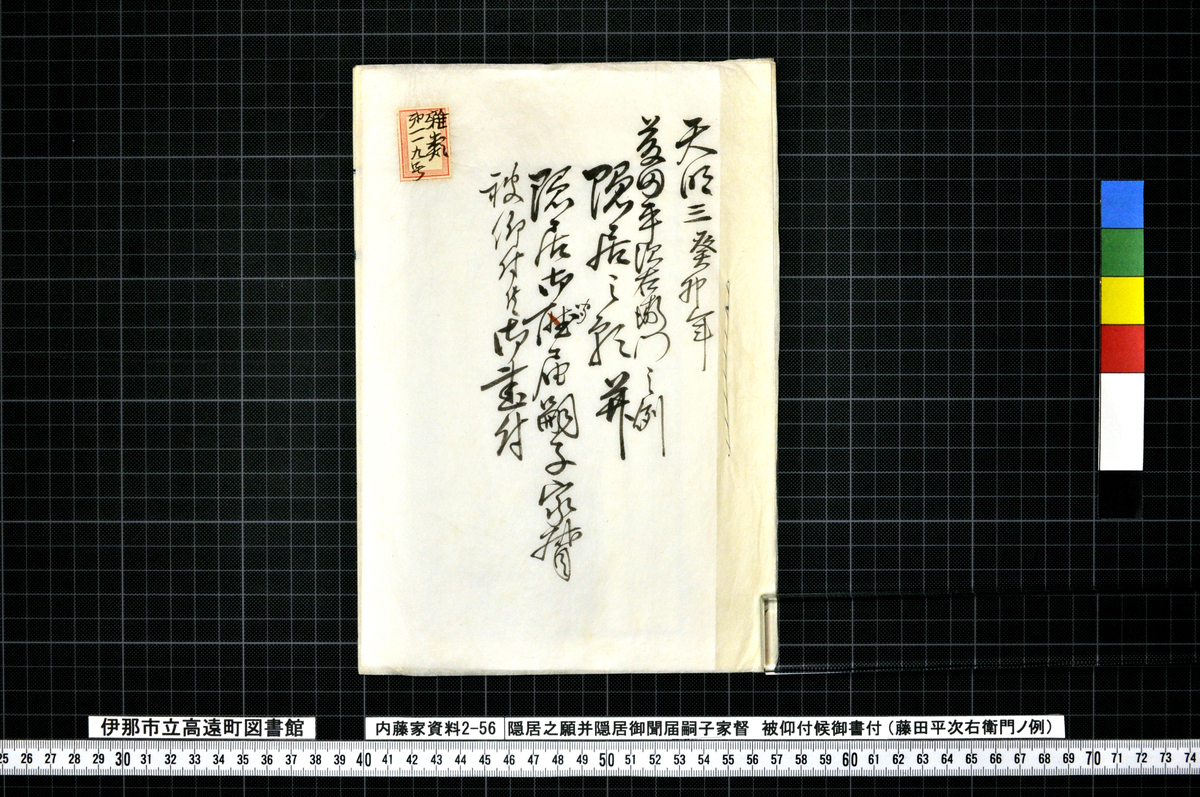 天明三癸卯年
藤田平次右衛門之例
隠居之願并
隠居御聞届嗣子家督
被仰付候御書付
雑類
第一一九号
伊那市立高遠町図書館
内藤家資料2-56
隠居之願并隠居御聞届嗣子家督 被仰付候御書付(藤田平次右衛門ノ例)
25 26 27 28 29 30 31 32 33 34 35 36 37 38 39 40 41 42 43 44 45 46 47 48 49 50 51 52 53 54 55 56 57 58 59 60 61 62 63 64 65 66 67 68 69 70 71 72 73 74